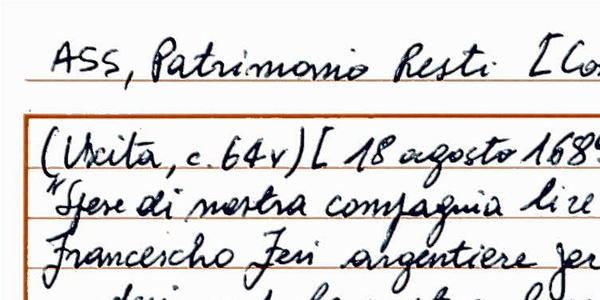 ASS, Patrimonio Resti [Co
(Uscita, c. 64v) [ 18 agosto 168
"Spese di nostra compagnia lire
Francescho Feri argentiere per